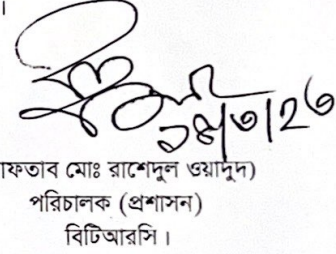 ।
ফতাব মোঃ রাশেদুল ওয়াদুদ)
পরিচালক (প্রশাসন)
বিটিআরসি।